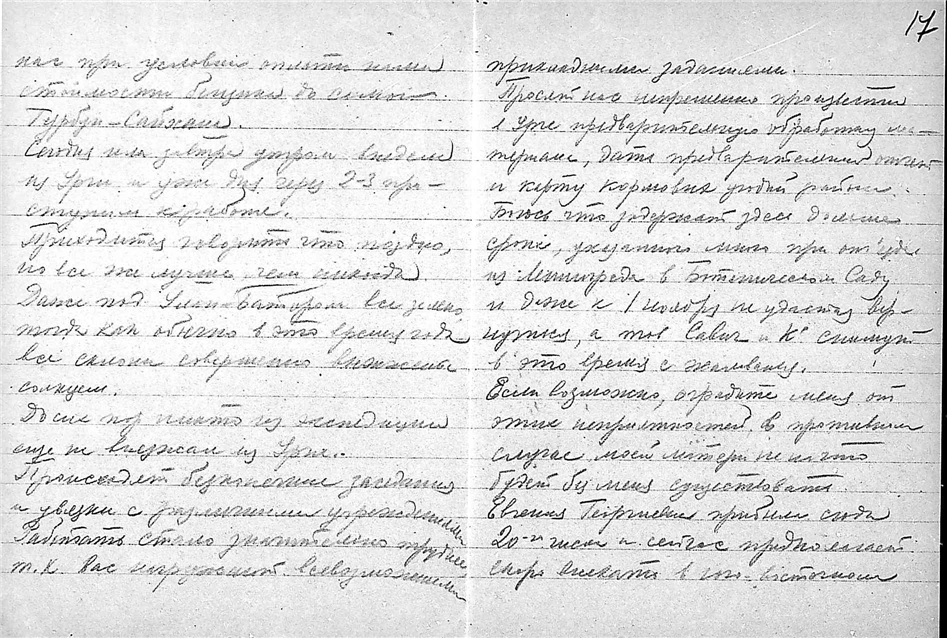 17
нас при условии оплаты нами
стоимости бензина до самого
Гурбун-Сайхана.
Сегодня или завтра утром выедем
из Урги и уже дня через 2-3 при-
ступим к работе.
Приходится говорить что поздно,
но все же лучше чем никогда
Даже под Улан-Батором все зелено
тогда как обычно в это время года
все склоны совершенно выжжены
солнцем.
До сих пор никто из экспедиции
еще не выезжал из Урги.
Происходят бесконечные заседания
и увязки с различными учреждениями
Работать стало значительно труднее
т.к. нас нагружают всевозможными
прикладными заданиями.
Просят нас непременно произвести
в Урге предварительную обработку ма-
териала, дать предварительный отчет
и карту кормовых угодий района.
Боюсь что задержат здесь дольше
срока, указанного мною при отъезде
из Ленинграда в Ботаническом Саду
и даже к 1 ноября не удастся вер-
нуться, а тов Савич и Ко снимут
в это время с жалования.
Если возможно, оградите меня от
этих неприятностей, в противном
случае моей матери не на что
будет без меня существовать
Евгения Георгиевна прибыла сюда
20-го числа и сейчас предполагает
скоро выехать в юго-восточном